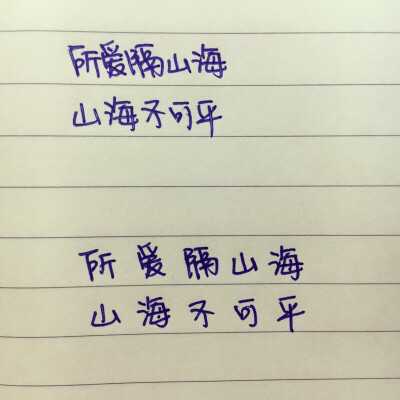 所爱隔山海
山海不可平
所爱隔山海
山海不可平